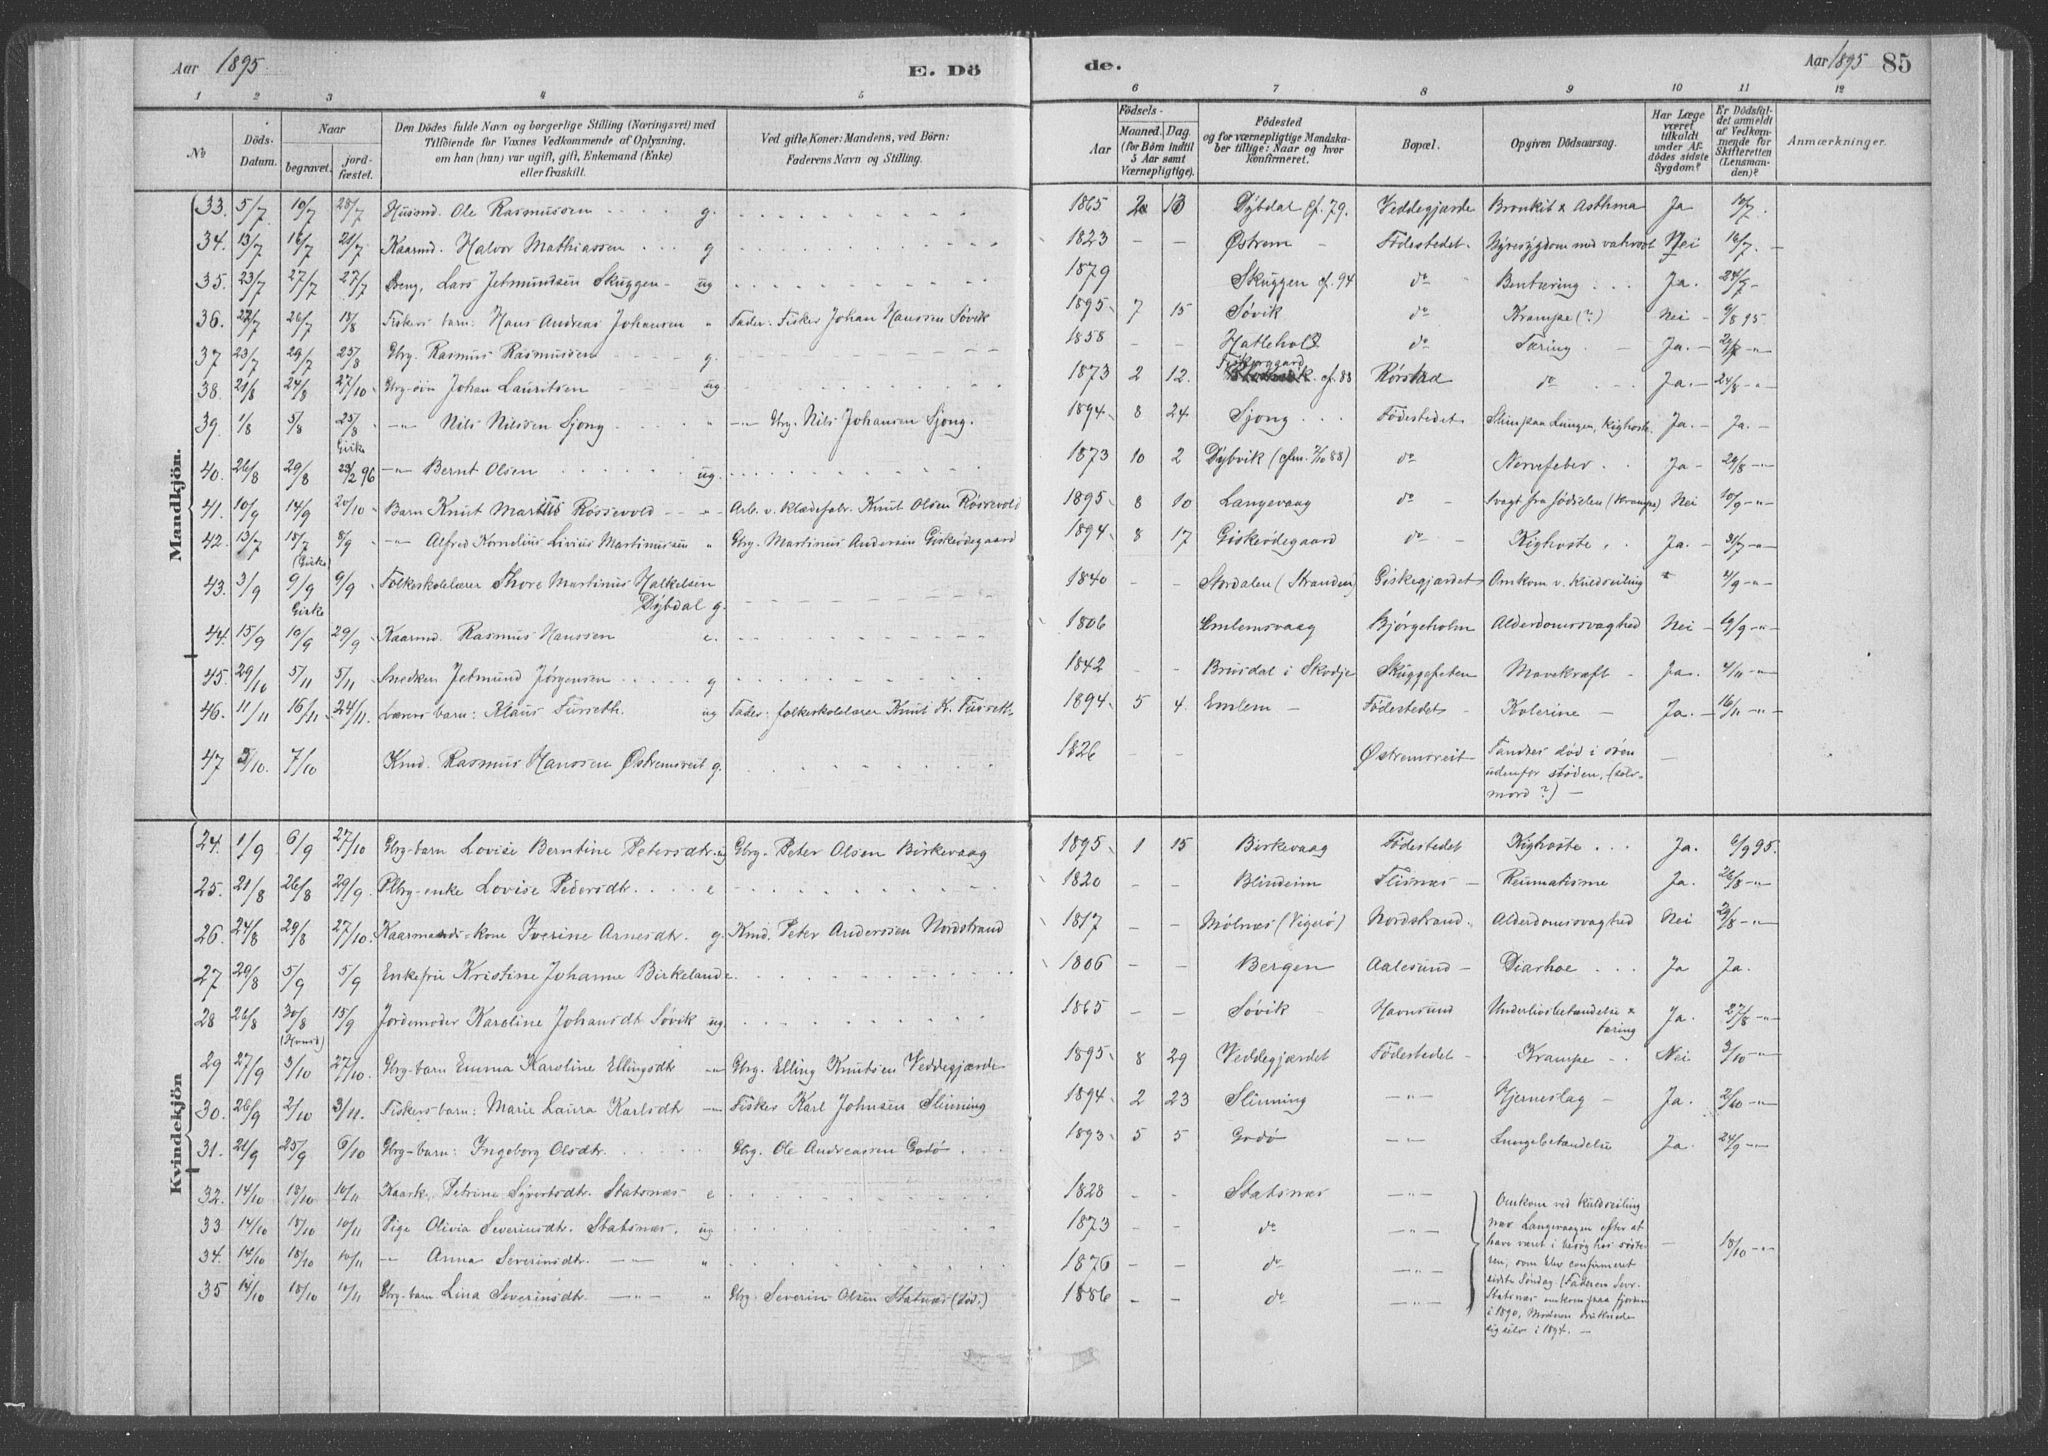 Aar 1895. E. Dö
de. Aar 1895 85
1 2 3 4 5
6 7 8 9 10 11 12
No Döds-Datum. Naar begravet. jordfæstet. Den Dödes fulde Navn og borgerlige Stilling (Næringsvei) med Tilföiende for Voxnes Vedkommende af Oplysning, om han (hun) var ugift, gift, Enkemand (Enke) eller fraskilt. Ved gifte Koner: Mandens, ved Börn: Faderens Navn og Stilling.
Födsels- Aar Maaned. Dag. (for Börn indtil 5 Aar samt Værnepligtige). Födested og for værnepligtige Mandskaber tillige: Naar og hvor konfirmeret. Bopæl. Opgiven Dödsaarsag. Har Læge været tilkaldt under Afdödes sidste Sygdom? Er Dödsfaldet anmeldt af Vedkommende for Skifteretten (Lensmanden)? Anmærkninger.
Mandkjön.
33. 5/7 10/7 28/7 Husmd. Ole Rasmussen g. 1865 2 13 Dybdal cf. 79. Veddegjærde Bronkit & Asthma Ja 10/7.
34. 13/7 16/7 21/7 Kaarmd. Halvor Mathiassen g 1823 - - Østrem - Fødestedet. Nyresygdom med vahrsot Nei 16/7 -
35. 23/7 27/7 27/7 Dreng, Lars Jetmundsen Skuggen - ug 1879 Skuggen cf. 94 do Bentæring Ja. 24/7 -
36. 22/7 26/7 18/8 Fiskers barn: Hans Andreas Johansen " Fader. Fisker Johan Hanssen Søvik 1895 - 7 15 Søvik do Krampe (?) Nei - 9/8 95.
37 23/7 29/7 25/8 Gbrg. Rasmus Rasmussen g. 1858 - - Hatlehol do Tæring. Ja. -
38. 21/8 24/8 27/10 Gbrg-søn Johan Lauritsen ug 1873 2 12. Fiskergaard cf. 88 Rørstad do Ja. - 24/8 -"-
39. 1/8 5/8 25/8 Giske -"- Nils Nilssen Sjong " -"- Gbrg. Nils Johansen Sjong. 1894 - 8 24 Sjong Fødestedet Slim paa Lungen, Kighoste. Ja. - Ja. -
40. 26/8 29/8 23/2 96 -"- Bernt Olsen ug. 1873 10 2 Dybvik (cfm. 7/10 88) do Nervefeber Ja - 29/8 -"-
41. 10/9 14/9 20/10 Barn Knut Martius Røssevold -"- Arb. v. Klædefabr. Knut Olsen Røssevold 1895 - 8 10 Langevaag do - Svagt fra fødselen (Krampe) Nei 10/9 -"-
42. 13/7 18/7 (Giske) 8/9 -"- Alfred Kornelius Livius Martinussen " Gbrg. Martinus Andersen Giskeødegaard 1894 - 8 17 Giskeødegaard do - Kighoste. Ja. - 31/7 -"-
43. 3/9 9/9 Giske 9/9 Folkeskolelærer Thore Martinus Halkelsen Dybdal g. 1840 - - Stordalen (Stranden) Giskegjærdet Omkom v. Kuldseiling " 4/9 -"-
44. 15/9 19/9 29/9 Kaarmd. Rasmus Hanssen e. 1806 Emlemsvaag Bjørgeholm Alderdomssvaghed Nei - 19/9 -"-
45. 29/10 5/11 5/11 Snedker Jetmund Jørgensen g 1842 - - Brusdal i Skodje Skuggefeten Mavekræft - Ja. 4/11 -"-
46. 11/11 16/11. 24/11. Lærers barn: Klaus Furseth. ug Fader: folkeskolelærer Knut K. Furseth 1894. 5 4. Emlem - Fødestedet - Kolerine - Ja. - 16/11 -"-
47 5/10. 7/10 Kmd. Rasmus Hanssen Østremsveit g. 1826 - - Østremsveit Fandtes død i søen udenfor støden, (selvmord?) - - -
Kvindekjön
24. 1/9 6/9 27/10 Gbrg-barn Lovise Berntine Petersdtr. ug Gbrg. Peter Olsen Birkevaag 1895 - 1 15 Birkevaag Fødestedet Kighoste Ja. 6/9 95.
25. 21/8 26/8 29/9. Pltsg-enke Lovise Pedersdtr. e 1820 - - Blindeim Flisnæs - Reumatisme Ja. 26/8 -"-
26. 24/8 29/8 27/10. Kaarmands-kone Iverine Arnesdtr. g. Kmd. Peter Anderssen Nordstrand 1817 - - Mølnæs (Vigerø) Nordstrand. Alderdomssvaghed Nei 29/8 -"-
27 29/8 5/9 5/9 Enkefru Kristine Johanne Birkeland e. 1806 - - Bergen Aalesund - Diarhoe Ja Ja.
28 26/8 30/8 15/9 Jordemoder Karoline Johansdtr Søvik ug. 1865 - - Søvik Havnsund Underlivsbetændelse & tæring Ja. 27/8 -"-
29 27/9 3/10 27/10. Gbrg-barn Emma Karoline Ellingsdtr -"- Gbrg. Elling Knutsen Veddegjærde 1895 - 8 29 Veddegjærdet Fødestedet - Krampe Nei 3/10 -"-
30. 26/9 2/10 3/11. Fiskers barn: Marie Laura Karlsdtr -"- Fisker Karl Johnsen Slinning 1894 - 2 23 Slinning -"- Hjerneslag - Ja. 2/10 -"-
31. 21/9 25/9 6/10 Gbrg-barn: Ingeborg Olsdtr. Gbrg. Ole Andreassen Godø 1893 - 5 5 Godø -"- Lungebetændelse Ja. 24/9 -"-
32. 14/10 18/10 10/11 Kaark. Petrine Syvertsdtr. Statsnæs e 1828 - - Statsnæs -"- Omkom ved Kuldseiling
33 14/10 18/10 10/11 Pige Olivia Severinsdtr. Statsnæs. ug 1873 - - do -"- nær Langevaagen efter at have været i besøg hos søsteren, som blev confirmeret sidste Søndag (Faderen Sevr. Statsnæs omkom paa fjorden i 1890, Moderen druknede sig selv i 1894. - - 18/10 -"-
34. 14/10 18/10 10/11 -"- Anna Severinsdtr. -"- " 1876 - - do -"-
35 14/10 18/10 10/11 Gbrg-barn Lina Severinsdtr. -"- " Gbrg. Severin Olsen Statnæs (død.) 1886 - - do -"-